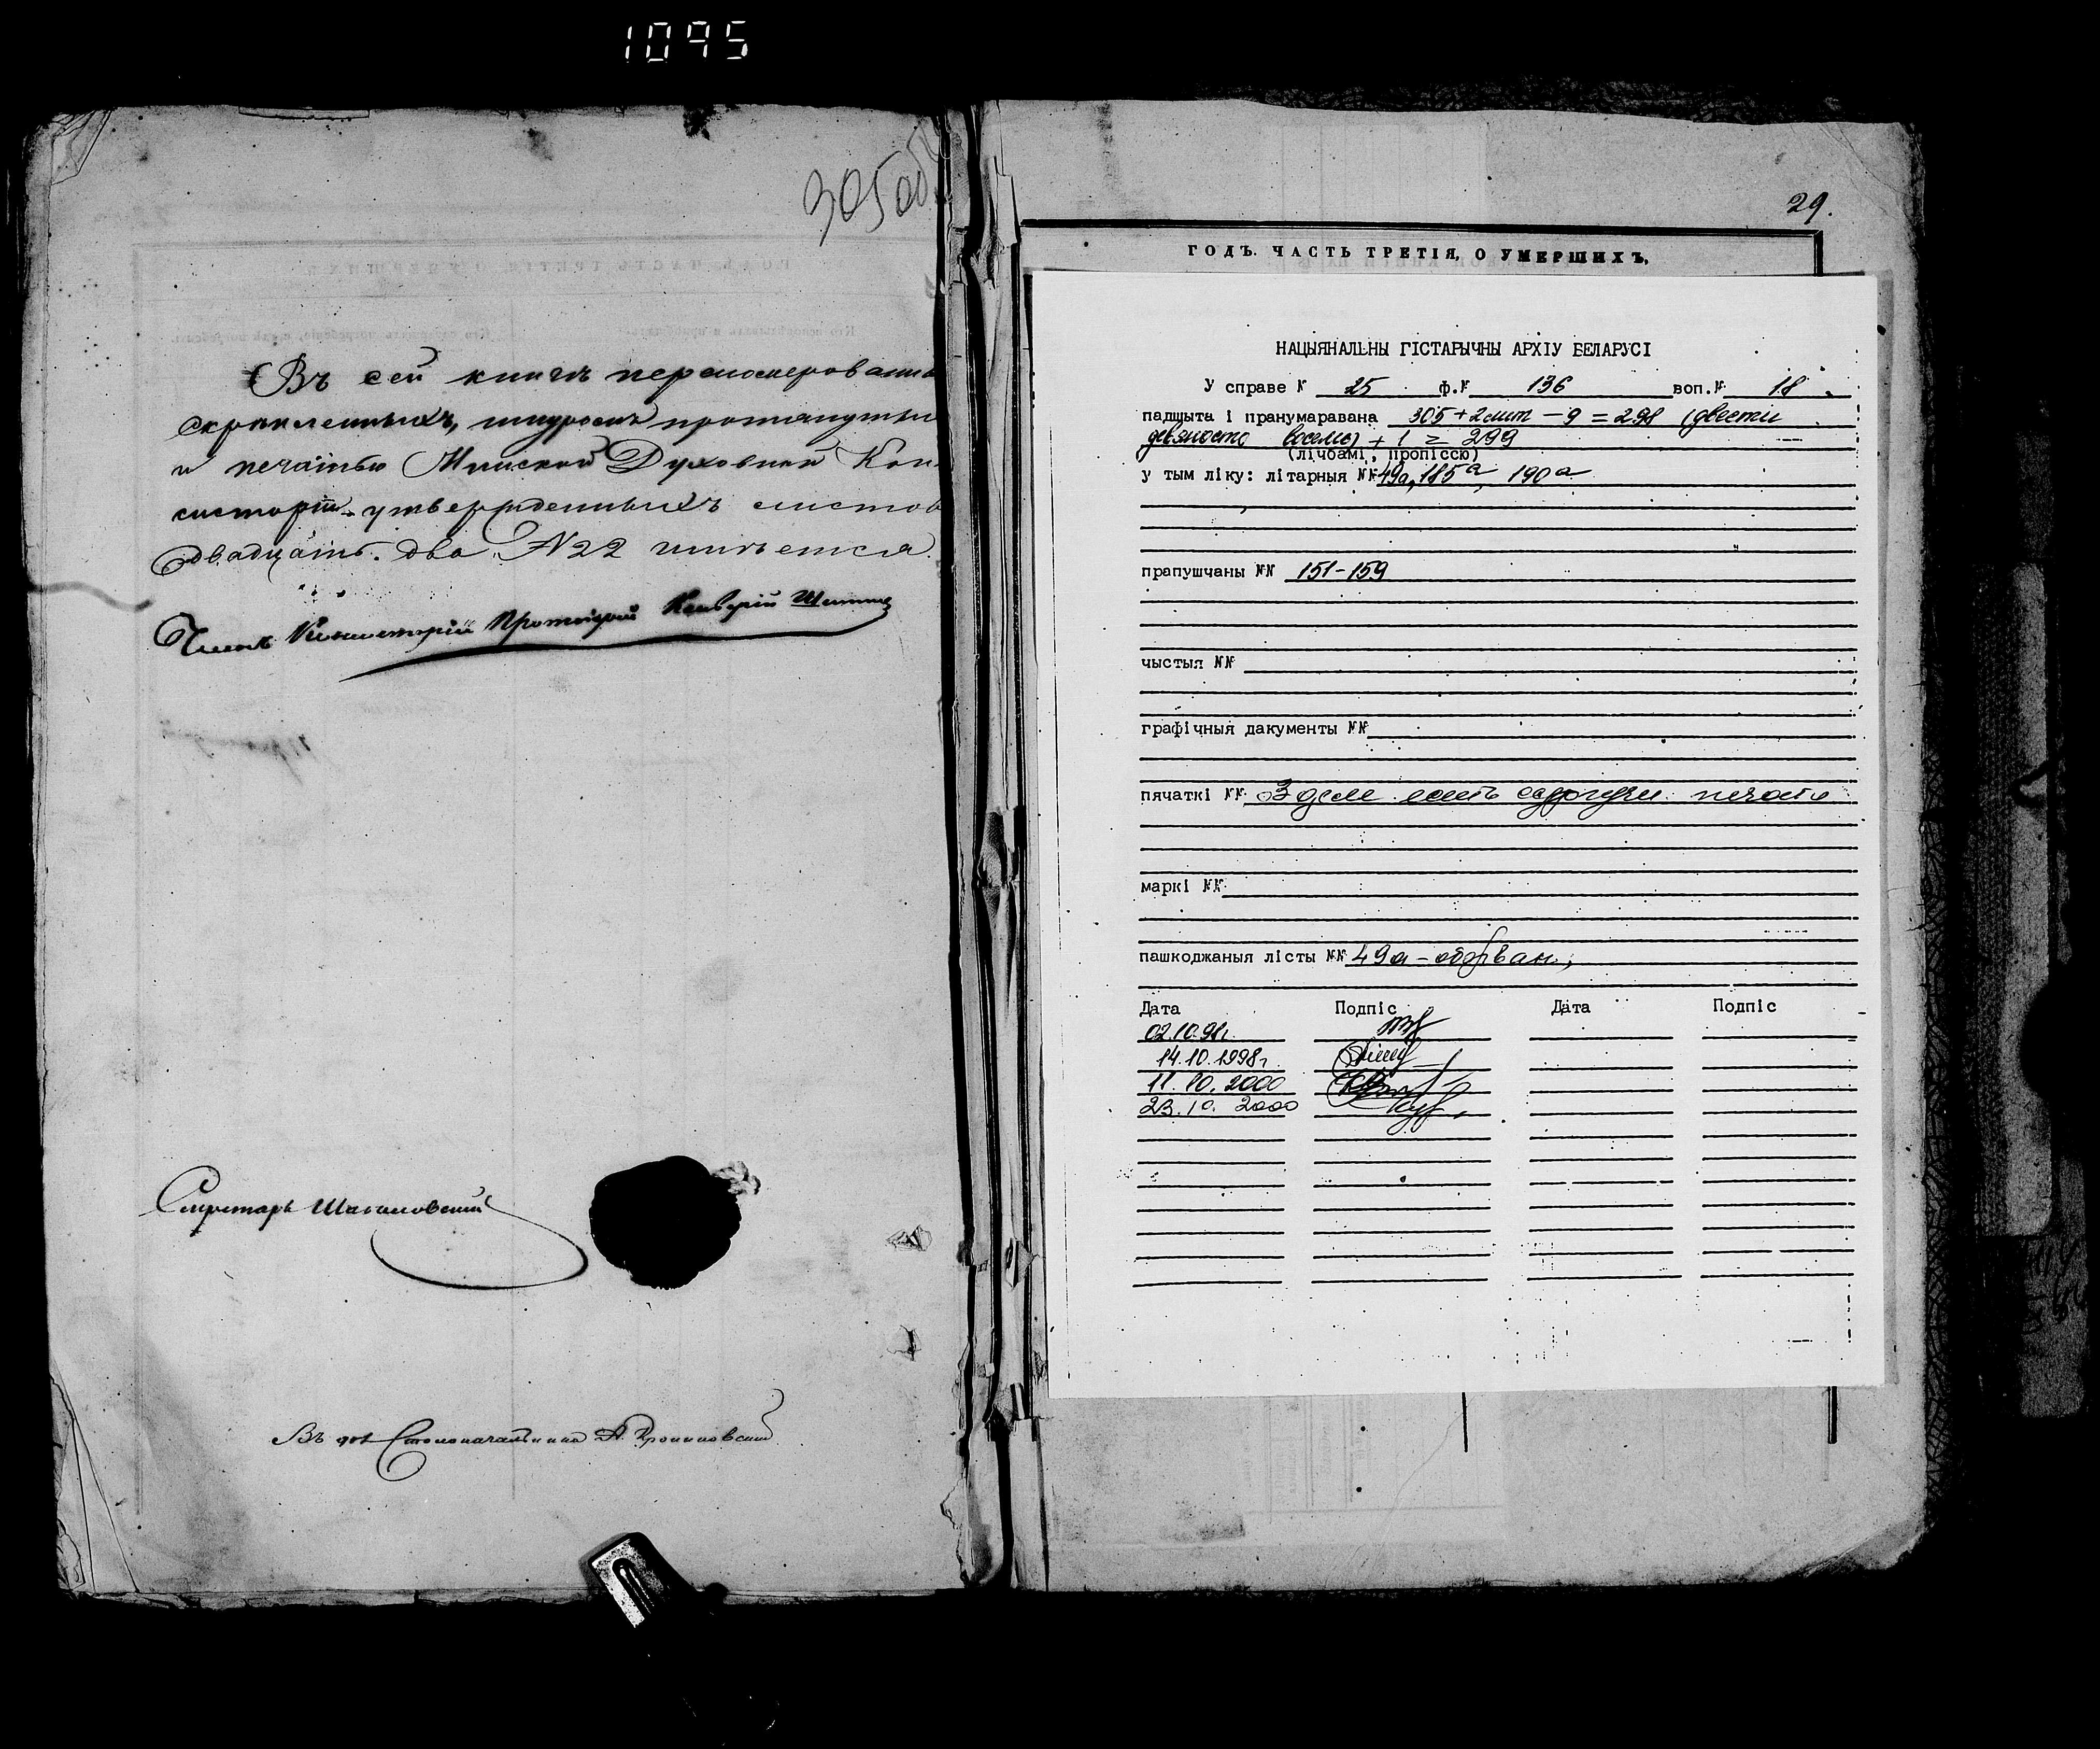 1095
305об
Въ сей книгѣ перенумерованны
скрѣпленныхъ, шнуромъ протянутых
и печатью Минской Духовной Кон
систоріи утвержденныхъ листов
двадцать два N22 имѣется.
Членъ Консисторіи Протоіерей
Секретарь
Въ дол. Столоначальника А.
29.
ГОДЪ. ЧАСТЬ ТРЕТІЯ, О УМЕРШИХЪ,
НАЦЫЯНАЛЬНЫ ГІСТАРЫЧНЫ АРХІУ БЕЛАРУСІ
У справе № 25 ф.№ 136 воп.№ 18
падшыта і пранумаравана 305+2лит-9=298 (двести
девяносто восемь) + 1 = 299
(лічбамі, пропіссю)
у тым ліку: літарныя №№ 49а, 185а, 190а
прапушчаны №№ 151-159
чыстыя №№
графічныя дакументы №№
пячаткі №№ В деле есть сургучн. печати
маркі №№
пашкоджаныя лісты №№ 49а - оборван,
Дата Подпіс Дата Подпіс
02.10.98г.
14.10.1998г.
11.10.2000
23.10.2000